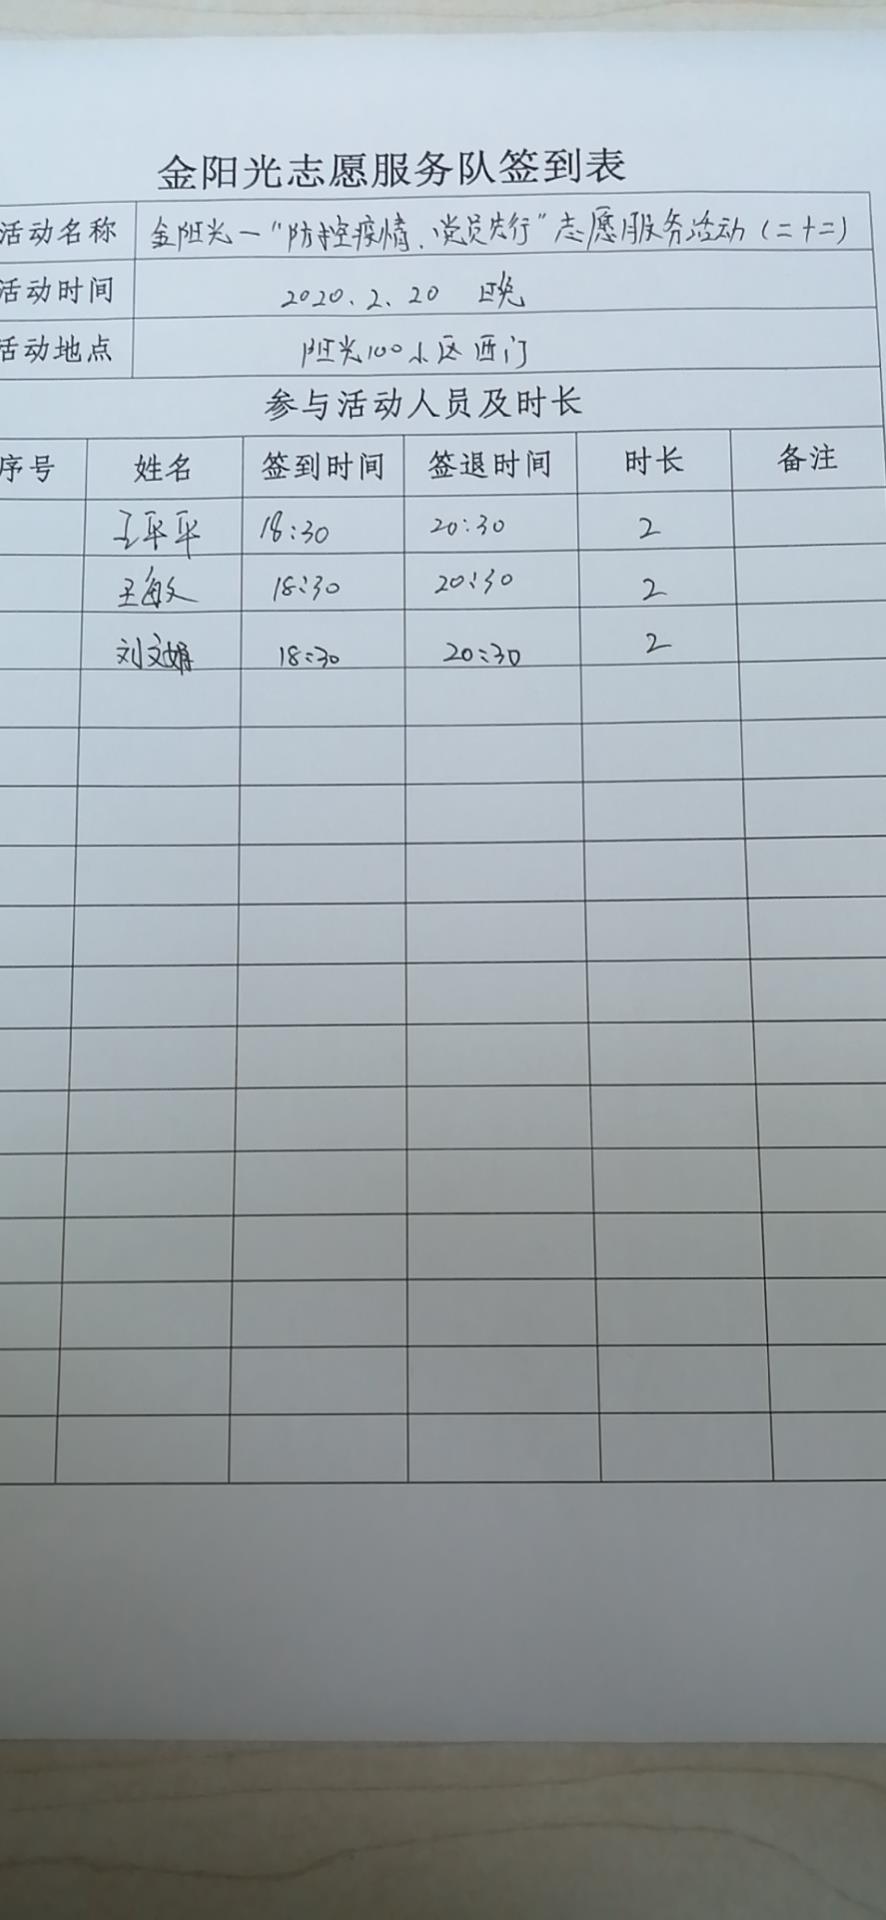 金阳光志愿服务队签到表
活动名称 金阳光一"防控疫情、党员先行"志愿服务活动(二十二)
活动时间 2020.2.20 晚
活动地点 阳光100小区西门
参与活动人员及时长
序号 姓名 签到时间 签退时间 时长 备注
王平平 18:30 20:30 2
王敏 18:30 20:30 2
刘文娟 18:30 20:30 2